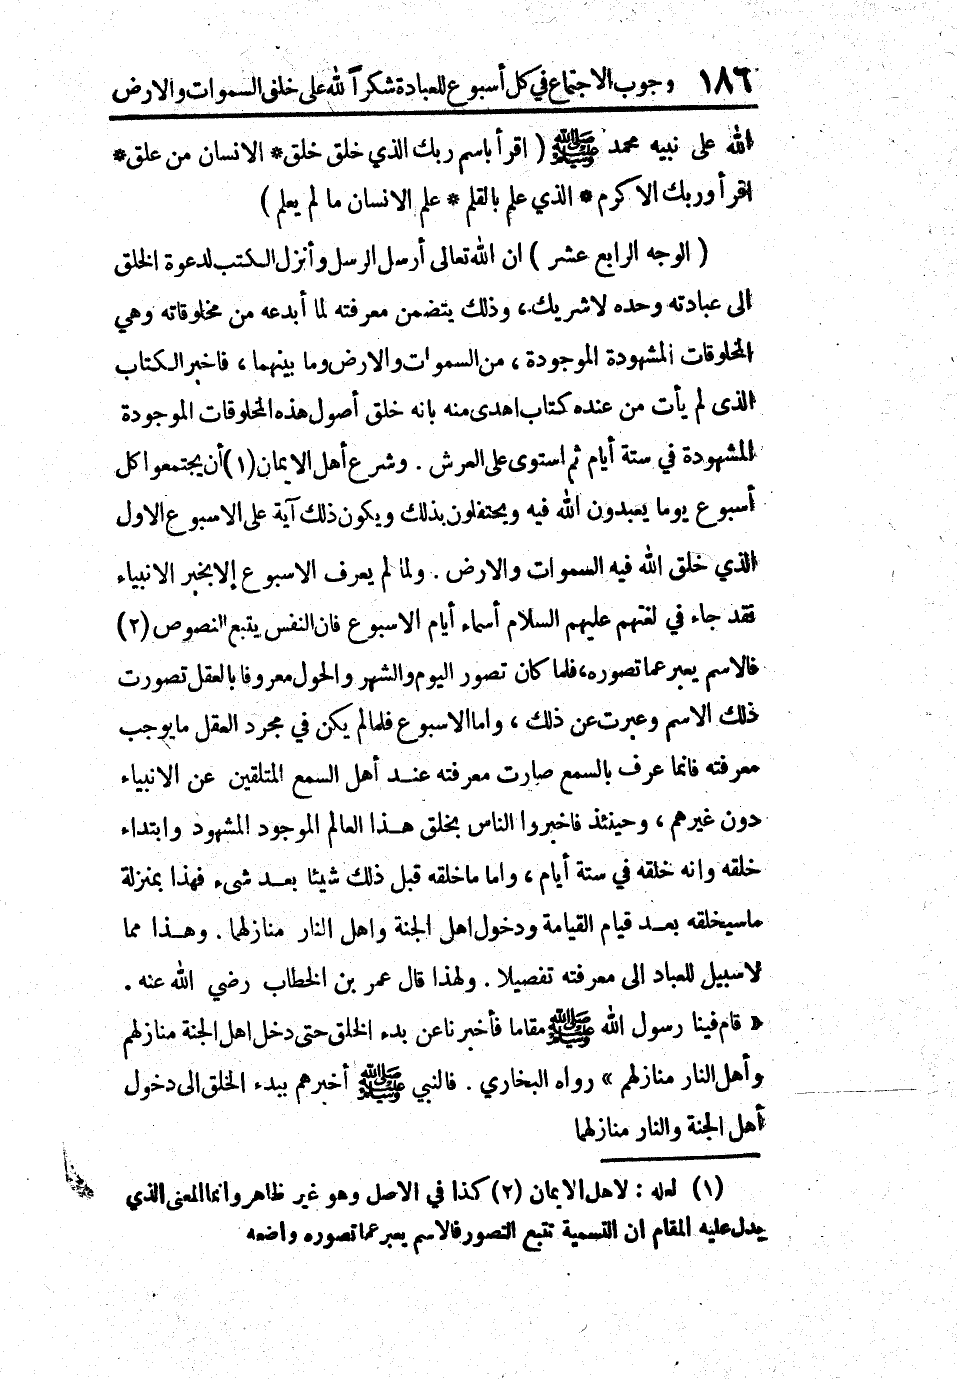 ١٨٦ وجوب الاجتماع في كل أسبوع للعبادة شكراً لله على خلق السموات والارض
الله على نبيه محمد ﷺ ( اقرأ باسم ربك الذي خلق خلق* الانسان من علق*
اقرأ وربك الاكرم * الذي علم بالقلم * علم الانسان ما لم يعلم )
( الوجه الرابع عشر ) ان الله تعالى أرسل الرسل وأنزل الكتب لدعوة الخلق
الى عبادته وحده لاشريك، وذلك يتضمن معرفته لما أبدعه من مخلوقاته وهي
المخلوقات المشهودة الموجودة ، من السموات والارض وما بينهما ، فاخبر الكتاب
الذى لم يأت من عنده كتاب اهدى منه بانه خلق أصول هذه المخلوقات الموجودة
المشهودة في ستة أيام ثم استوى على العرش . وشرع أهل الايمان (١) أن يجتمعوا كل
أسبوع يوما يعبدون الله فيه ويحتفلون بذلك ويكون ذلك آية على الاسبوع الاول
الذي خلق الله فيه السموات والارض . ولما لم يعرف الاسبوع إلا بخبر الانبياء
فقد جاء في لغتهم عليهم السلام أسماء أيام الاسبوع فان النفس يتبع النصوص (٢)
فالاسم يعبر عما تصوره، فلما كان تصور اليوم والشهر والحول معروفا بالعقل تصورت
ذلك الاسم وعبرت عن ذلك ، واما الاسبوع فلما لم يكن في مجرد العقل مايوجب
معرفته فانما عرف بالسمع صارت معرفته عند أهل السمع المتلقين عن الانبياء
دون غيرهم ، وحينئذ فاخبروا الناس بخلق هذا العالم الموجود المشهود وابتداء
خلقه وانه خلقه في ستة أيام ، واما ماخلقه قبل ذلك شيئا بعد شىء فهذا بمنزلة
ماسيخلقه بعد قيام القيامة ودخول اهل الجنة واهل النار منازلهما . وهذا مما
لاسبيل للعباد الى معرفته تفصيلا . ولهذا قال عمر بن الخطاب رضي الله عنه .
« قام فينا رسول الله ﷺ مقاما فأخبرنا عن بدء الخلق حتى دخل اهل الجنة منازلهم
وأهل النار منازلهم » رواه البخاري . فالنبي ﷺ أخبرهم ببدء الخلق الى دخول
أهل الجنة والنار منازلهما
(١) لعله : لاهل الايمان (٢) كذا في الاصل وهو غير ظاهر وانما المعنى الذي
يدل عليه المقام ان التسمية تتبع التصور فالاسم يعبر عما تصوره واضعه